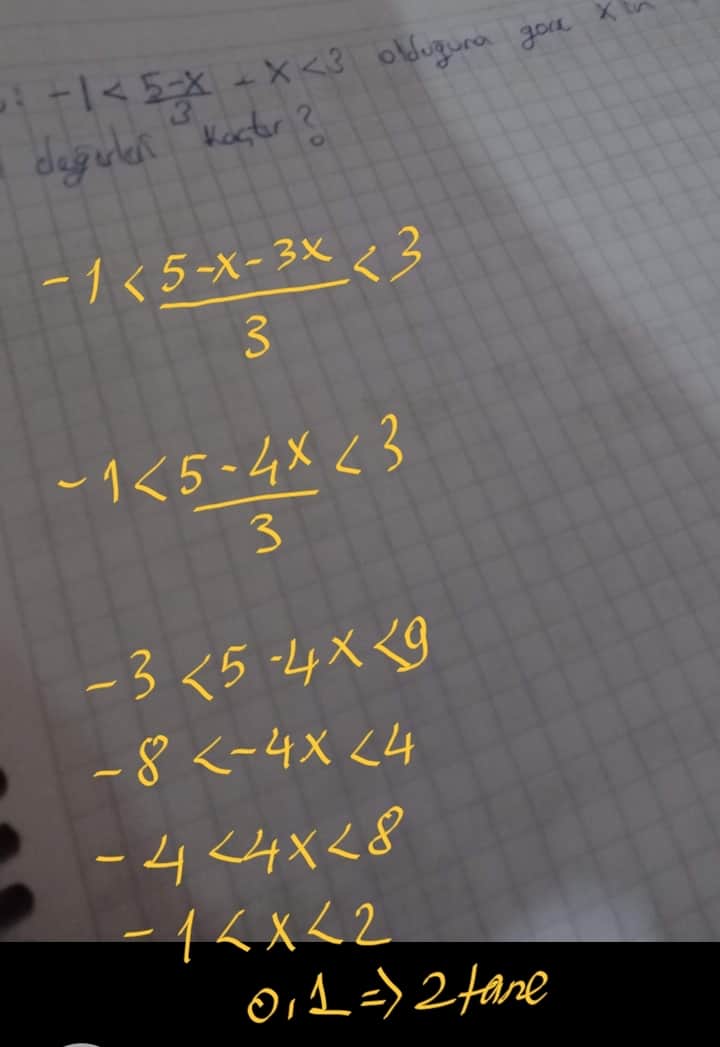 : -1 < 5-x/3 - x < 3 olduğuna göre x in
değerleri kaçtır?
-1 < 5-x-3x/3 < 3
-1 < 5-4x/3 < 3
-3 < 5-4x < 9
-8 < -4x < 4
-4 < 4x < 8
-1 < x < 2
0,1 => 2 tane